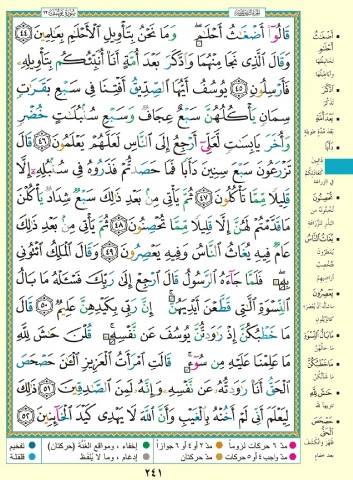 قَالُوٓا۟ أَضْغَٰثُ أَحْلَٰمٍ ۖ وَمَا نَحْنُ بِتَأْوِيلِ ٱلْأَحْلَٰمِ بِعَٰلِمِينَ ٤٤
وَقَالَ ٱلَّذِى نَجَا مِنْهُمَا وَٱدَّكَرَ بَعْدَ أُمَّةٍ أَنَا۠ أُنَبِّئُكُم بِتَأْوِيلِهِۦ
فَأَرْسِلُونِ ٤٥ يُوسُفُ أَيُّهَا ٱلصِّدِّيقُ أَفْتِنَا فِى سَبْعِ بَقَرَٰتٍ
سِمَانٍ يَأْكُلُهُنَّ سَبْعٌ عِجَافٌ وَسَبْعِ سُنۢبُلَٰتٍ خُضْرٍ
وَأُخَرَ يَابِسَٰتٍ لَّعَلِّىٓ أَرْجِعُ إِلَى ٱلنَّاسِ لَعَلَّهُمْ يَعْلَمُونَ ٤٦ قَالَ
تَزْرَعُونَ سَبْعَ سِنِينَ دَأَبًا فَمَا حَصَدتُّمْ فَذَرُوهُ فِى سُنۢبُلِهِۦٓ إِلَّا
قَلِيلًا مِّمَّا تَأْكُلُونَ ٤٧ ثُمَّ يَأْتِى مِنۢ بَعْدِ ذَٰلِكَ سَبْعٌ شِدَادٌ يَأْكُلْنَ
مَا قَدَّمْتُمْ لَهُنَّ إِلَّا قَلِيلًا مِّمَّا تُحْصِنُونَ ٤٨ ثُمَّ يَأْتِى مِنۢ بَعْدِ ذَٰلِكَ
عَامٌ فِيهِ يُغَاثُ ٱلنَّاسُ وَفِيهِ يَعْصِرُونَ ٤٩ وَقَالَ ٱلْمَلِكُ ٱئْتُونِى
بِهِۦ ۖ فَلَمَّا جَآءَهُ ٱلرَّسُولُ قَالَ ٱرْجِعْ إِلَىٰ رَبِّكَ فَسْـَٔلْهُ مَا بَالُ
ٱلنِّسْوَةِ ٱلَّٰتِى قَطَّعْنَ أَيْدِيَهُنَّ ۚ إِنَّ رَبِّى بِكَيْدِهِنَّ عَلِيمٌ ٥٠ قَالَ
مَا خَطْبُكُنَّ إِذْ رَٰوَدتُّنَّ يُوسُفَ عَن نَّفْسِهِۦ ۚ قُلْنَ حَٰشَ لِلَّهِ
مَا عَلِمْنَا عَلَيْهِ مِن سُوٓءٍ ۚ قَالَتِ ٱمْرَأَتُ ٱلْعَزِيزِ ٱلْـَٰٔنَ حَصْحَصَ
ٱلْحَقُّ أَنَا۠ رَٰوَدتُّهُۥ عَن نَّفْسِهِۦ وَإِنَّهُۥ لَمِنَ ٱلصَّٰدِقِينَ ٥١ ذَٰلِكَ
لِيَعْلَمَ أَنِّى لَمْ أَخُنْهُ بِٱلْغَيْبِ وَأَنَّ ٱللَّهَ لَا يَهْدِى كَيْدَ ٱلْخَآئِنِينَ ٥٢
أضغاث
أحلام
ادّكر
بعد أمّة
دأبا
تحصنون
يغاث الناس
يعصرون
ما بال النسوة
ما خطبكن
حاش لله
حصحص
الحق
مدّ ٦ حركات لزوماً
مدّ ٢ أو ٤ أو ٦ جوازاً
إخفاء، ومواقع الغنّة (حركتان)
تفخيم
مدّ واجب ٤ أو ٥ حركات
مدّ حركتان
إدغام، وما لا يُلفظ
قلقلة
٢٤١